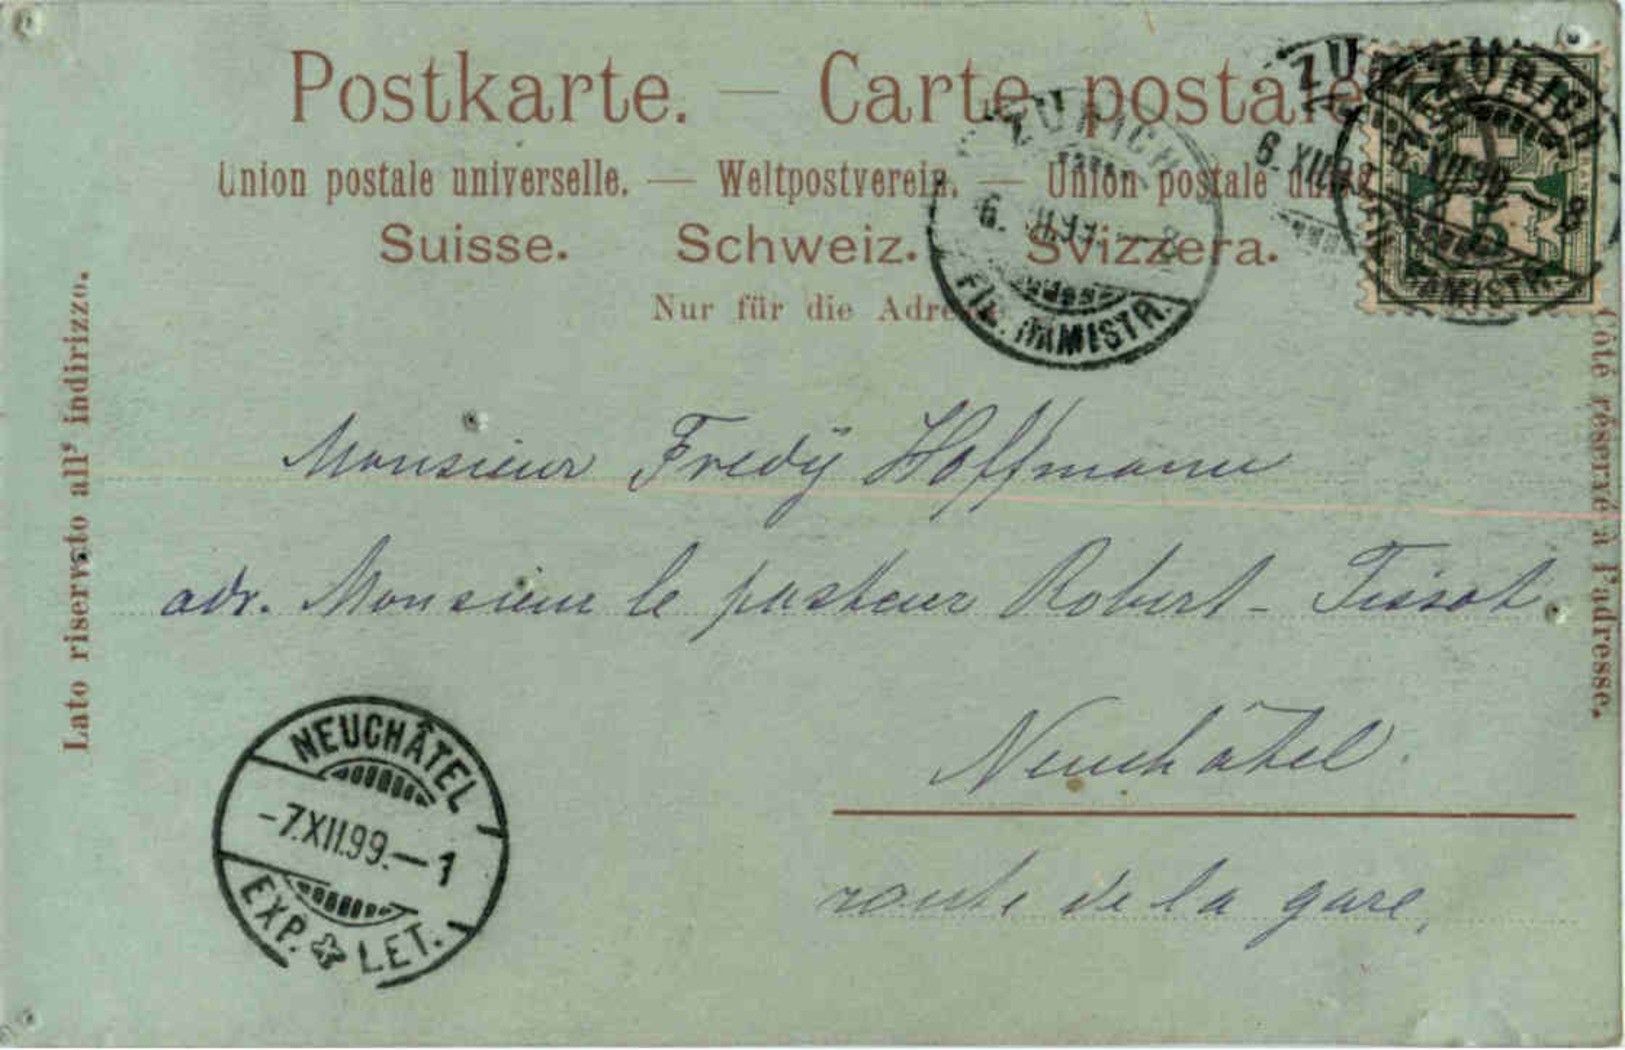 Postkarte. — Carte postale
Union postale universelle. — Weltpostverein. — Union postale
Suisse. Schweiz. Svizzera.
Nur für die Adresse
ZÜRICH
6. XII.99. — 8
FIL. RÄMISTR.
ZÜRICH
6. XII.99. — 8
RÄMISTR.
5
Lato riservato all' indirizzo.
Côté réservé à l'adresse.
Monsieur Fredÿ Hoffmann
adr. Monsieur le pasteur Robert - Tissot
Neuchâtel.
route de la gare,
NEUCHÂTEL
-7.XII.99.— 1
EXP. LET.